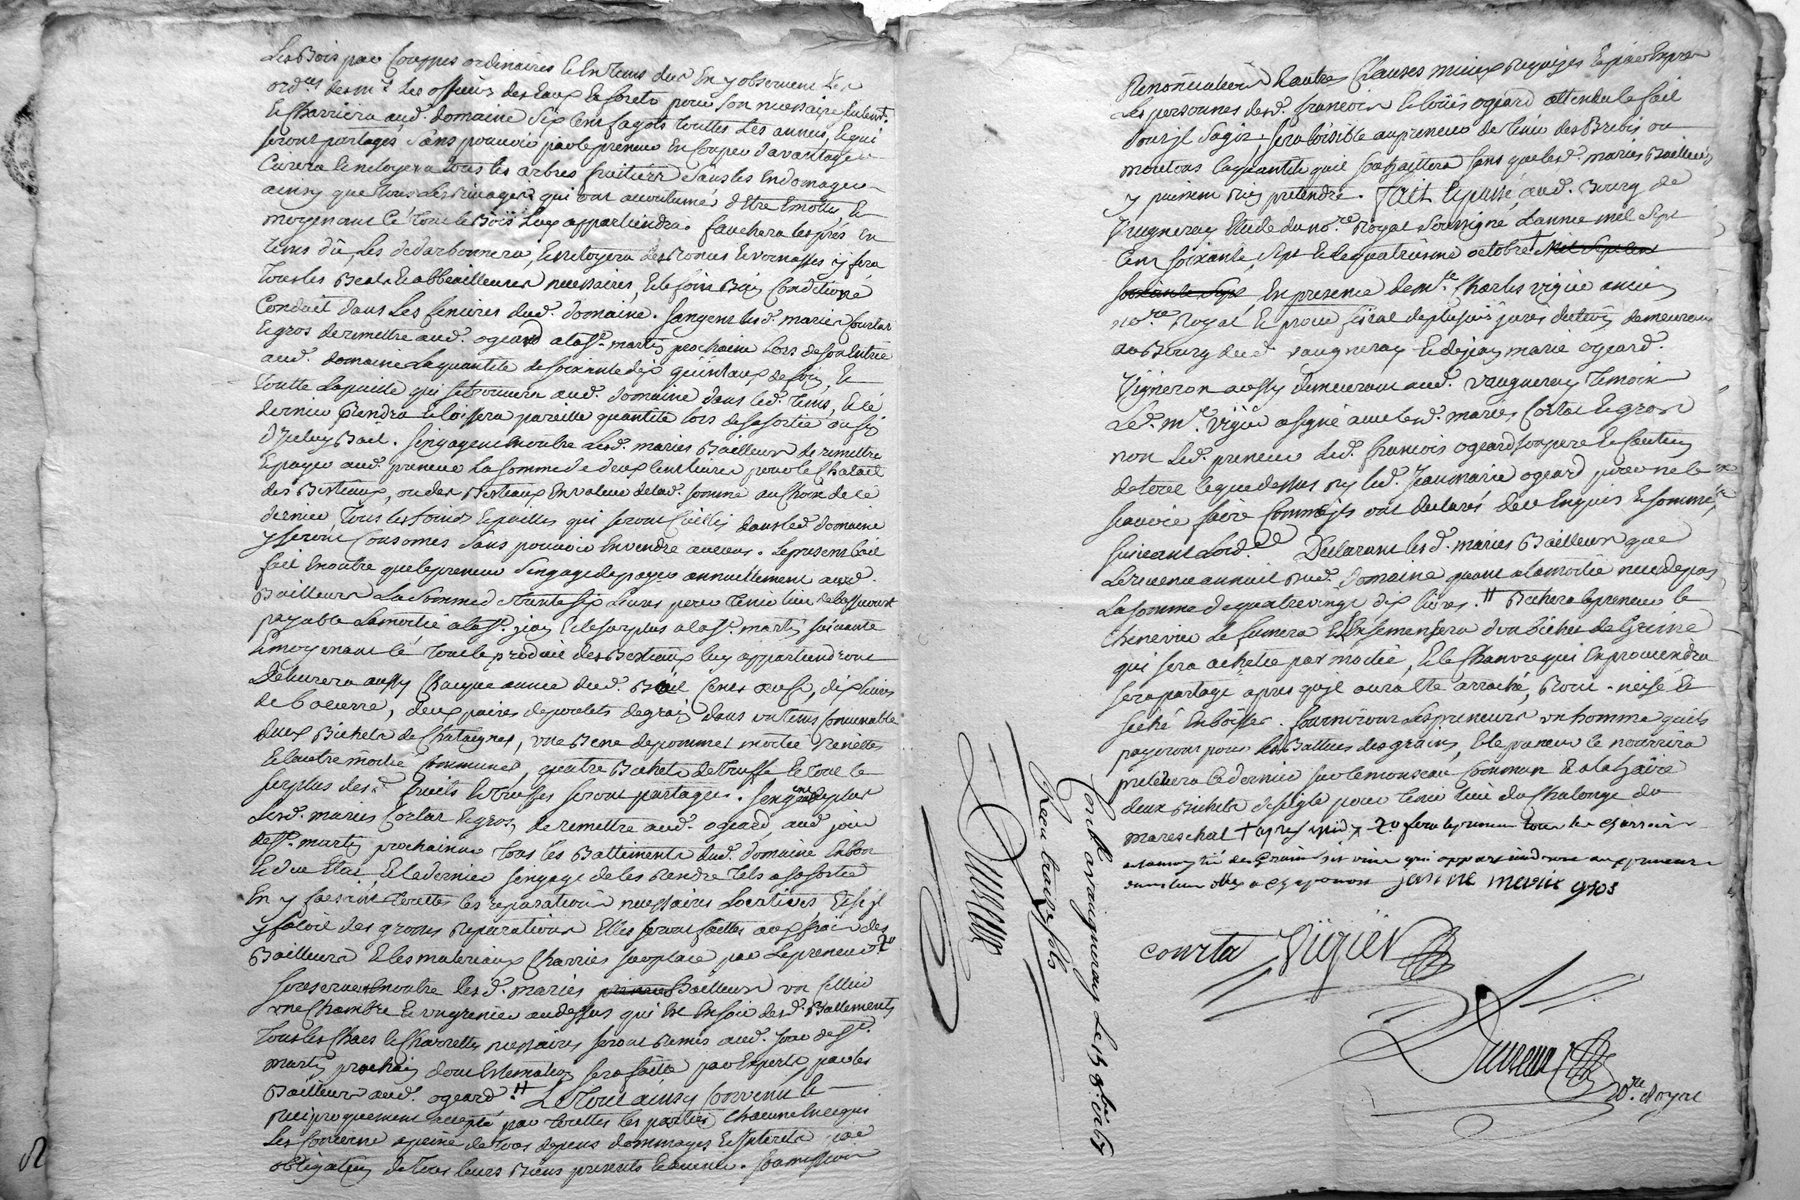 Les Bois par Couppes ordinaires et En tems dus En y observent Les
ord.ces des m.rs Les officiers des Eaux et forets pour son necessaire
Et Charriera aud. domaine six cent fagots touttes Les années, Lequi
seront partagés sans pouvoir par le preneur En Couper davantage
Curera Et netoyera tous les arbres fruitiers sans les Endomager
ainsy que tous Les rivages qui ont accoutumes d'Etre Emottes, Et
moyenant Cé tout le Bois Luy appartiendra. fauchera les prés En
tems dû Les dedarbonnera, Et netoyera des Ronces Et vernasses y fera
tous les Beals Et abbeailleures necessaires, Et le foin Bien Conditioné
Conduit dans Les fenieres dud. domaine. sengagent les d. maries Courtat
Et gros de remettre aud. ogeard a la S.t martin prochaine Lors de son Entrée
aud. domaine La quantité de soixante dix quintaux de foin, Et
toutte La paille qui se trouvera aud. domaine dans led. tems, Et Cé
dernier prendra Et Laissera pareille quantité Lors de sa sortie ou fin
d'Iceluy Bail. sengagent Enoutre Lesd. maries Bailleurs de remettre
Et payer aud. preneur La somme de deux Cent Livres pour le Chatail
des Bestiaux, ou des Bestiaux En valeur de lad. somme au Choix de Cé
dernier, tous les foins Et pailles qui seront Cueillis dans led. domaine
y seront Consomes sans pouvoir En vendre aucuns. Le present bail
fait Enoutre que le preneur s'engage de payer annuellement auxd.
Bailleurs La Somme de trente six Livres pour tenir lieu de la basse cour
payable La moitié a la S.t jean Et le surplus a la S.t martin suivante
Et moyenant Cé tout le produit des Bestiaux luy appartiendront
Delivrera aussy Chacque année dud. Bail Cent œufs, dix livres
de beurre, deux paires de poulets de grain dans un tems Convenable
deux Bichets de Chataignes, une Bene de pommes moitié Renettes
Et L'autre moitié Communes, quatre Bichets de truffe Et tout le
surplus des d. fruits Et truffes seront partagés. sengagent de plus
Lesd. maries Cortat Et gros, de remettre aud. ogeard, aud. jour
de S.t martin prochaine tous les Battiments dud. domaine En bon
Et due Etat, Et Ce dernier s'engage de les Rendre tels a sa sortie
En y faisant touttes les reparations necessaires Locatives Et s'il
y faloit des grosses Reparations Elles seront faittes aux frais des
Bailleurs Et les materiaux Charriés sur place par Le preneur
se reservent Enoutre les d. maries Bailleurs un Cellier
une Chambre Et un grenier au dessus qui Est En soir des d. Battiments
tous les Chars Et Charrettes necessaires seront Remis aud. jour de S.t
martin prochain dont Estimation sera faitte par Experts, par les
Bailleurs aud. ogeard. # Le tout ainsy Convenu Et
reciproquement accepté par touttes les parties Chacune En ce qui
Les Concerne a peine de tous depens dommages Et Interets par
obligation de tous leurs Biens presents Et avenir. soumissions
Renonciations Et autres Clauses mieux Requises Et par Exprès
Les personnes desd. francois Et Loüis ogeard attendu le fait
dont il s'agit, sera loisible au preneur de tenir des Brebis ou
moutons La quantité qu'il souhaittera sans que les d. maries Bailleurs
y puissent Rien pretendre. Fait Et passé aud. Bourg de
Vaugneray Etude du no.re Royal soussigné L'année mil sept
Cent soixante sept Et le quatrieme octobre † mil sept Cent
soixante sept En presence de m.re Charles Vigier ancien
no.re Royal Et procu fiscal de plusieurs jurisdictions demeurant
au Bourg dud. Vaugneray Et de jean marie ogeard
Vigneron aussy demeurant aud. Vaugneray temoins
Led. m.re Vigier a signé avec les d. maries Cortat Et gros
non Led. preneur Led. francois ogeard son pere Et Caution
de tout Ce que dessus ny led. Jean marie ogeard pour ne le
scavoir faire Comm'ils ont declarés de ce Enquis Et sommés
suivant L'ord.ce Declarant les d. maries Bailleurs que
Le revenu annuel dud. domaine quant a la moitié n'excede pas
La somme de quatre vingt dix livres. # Bechera le preneur le
Chenevier Le fumera Et L'ensemencera d'un bichet de Graine
qui sera achetée par moitié, Et le Chanvre qui En proviendra
sera partagé apres qu'il aura Eté arraché, Roui - neisé Et
seché En bottes. fourniront Les preneurs un homme qu'ils
payeront pour Les Battues des grains, Et le preneur le nourrira
prelevera Ce dernier sur le monceau Commun Et a la haire
deux Bichets de seigle pour tenir lieu du Chalonge du
mareschal † apres midy
janne merie gros
courta Vigier
Dureux
No.re Royal
Cont.lé a vaugneray Le 15 8.bre 1767
Recu trente six sols
Dureux